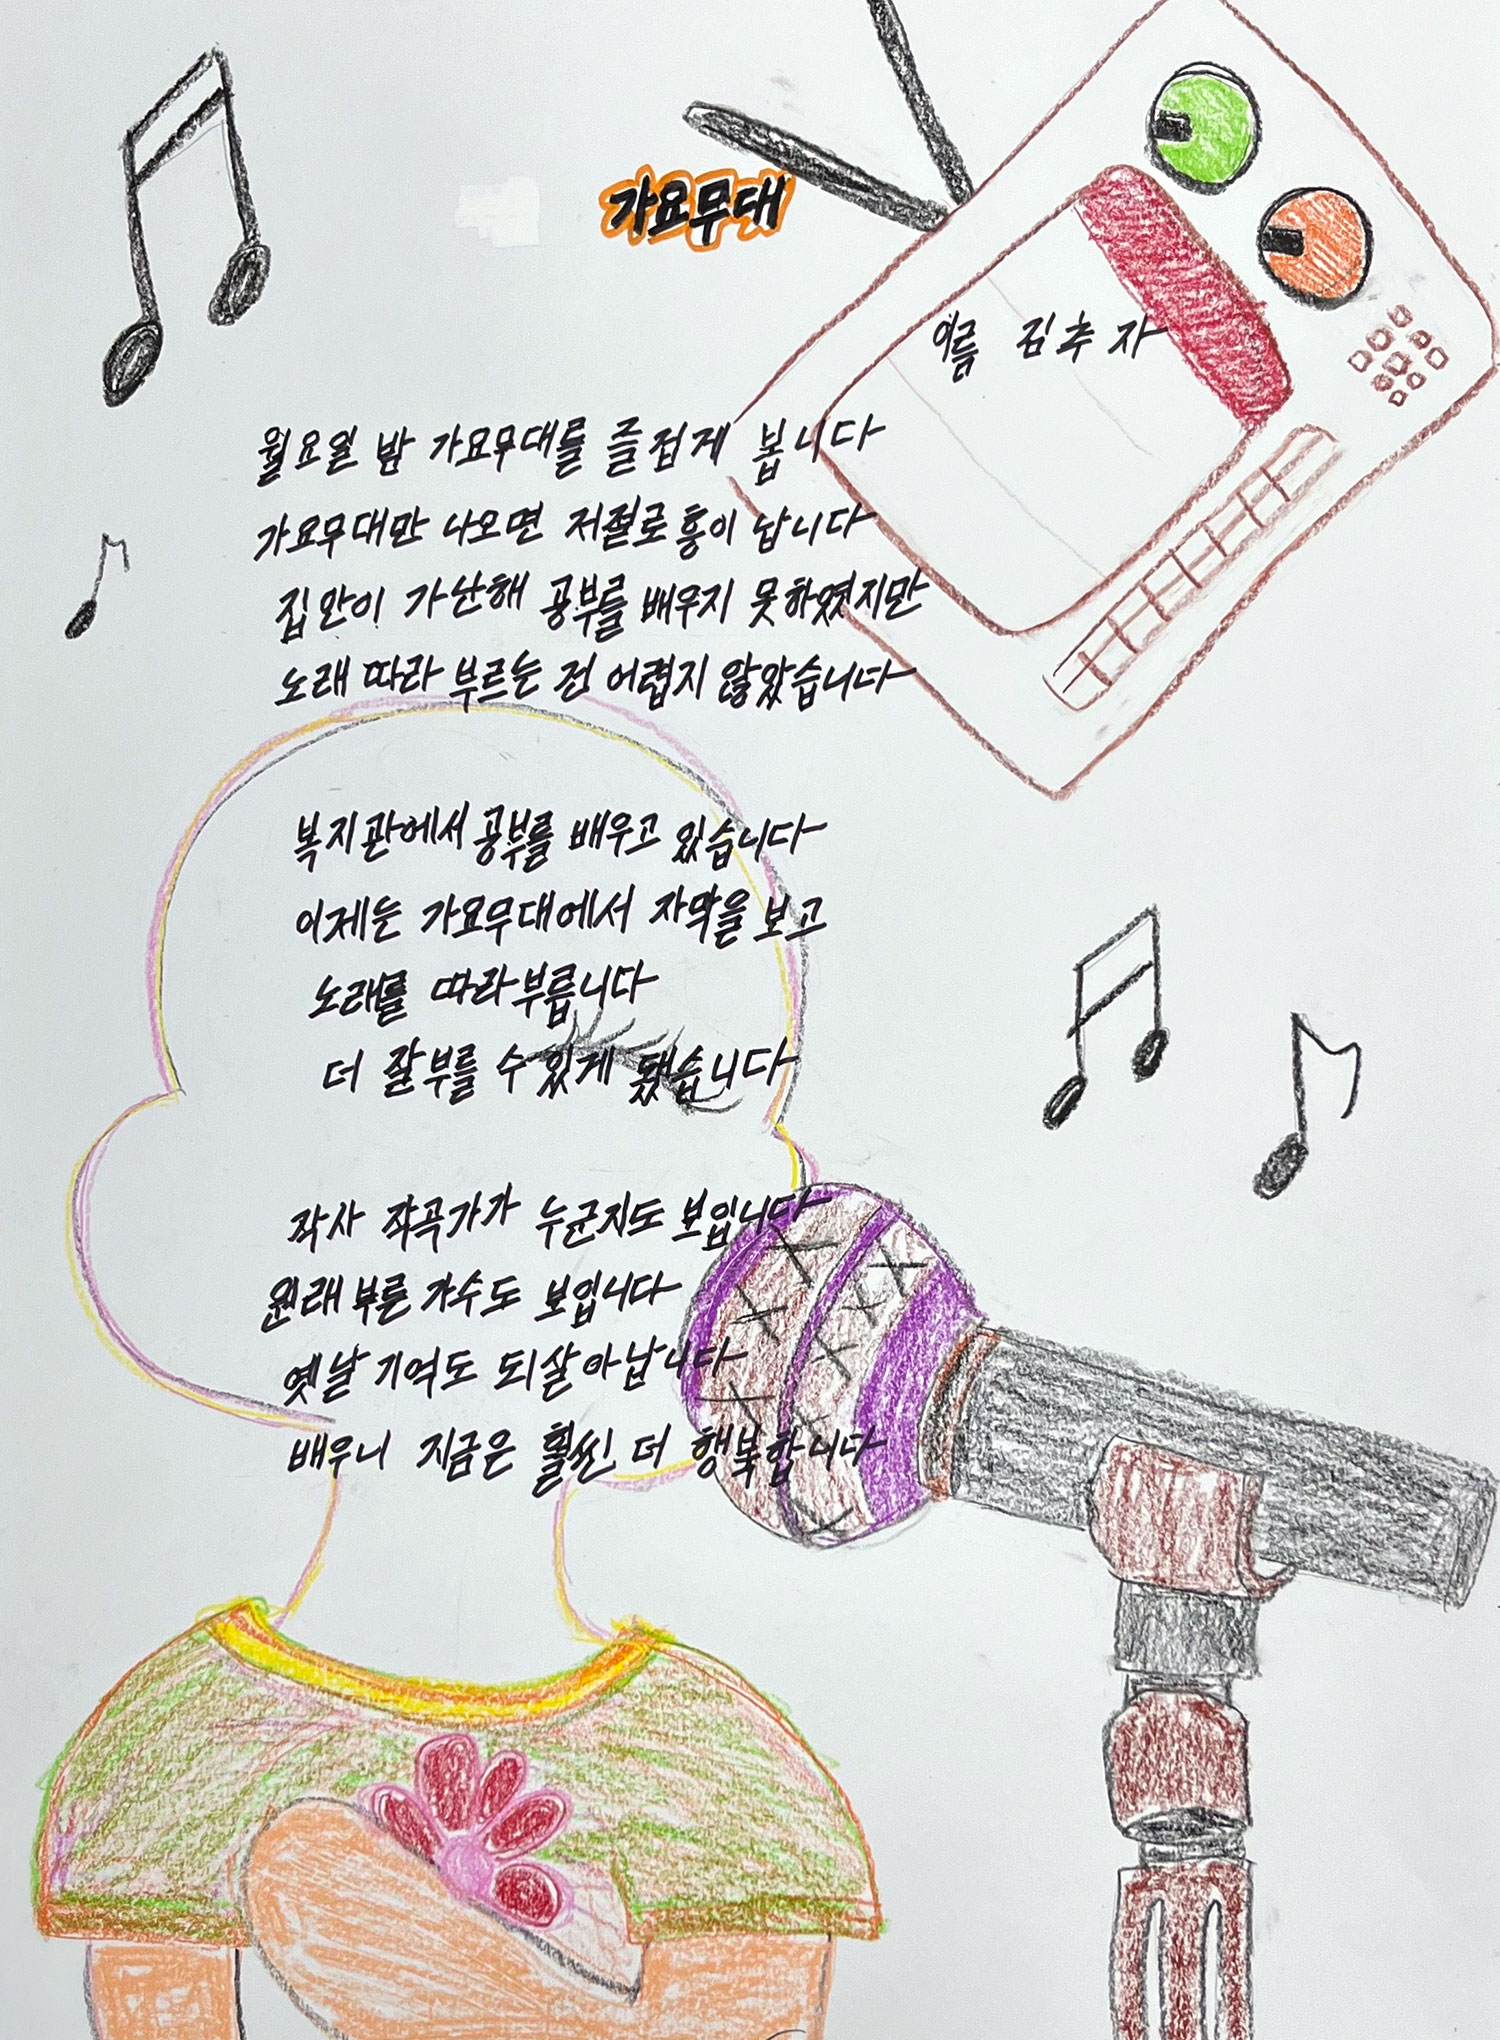 가요무대
이름 김추자
월요일 밤 가요무대를 즐겁게 봅니다
가요무대만 나오면 저절로 흥이 납니다
집안이 가난해 공부를 배우지 못하였지만
노래 따라 부르는 건 어렵지 않았습니다
복지관에서 공부를 배우고 있습니다
이제는 가요무대에서 자막을 보고
노래를 따라부릅니다
더 잘 부를 수 있게 됐습니다
작사 작곡가가 누군지도 보입니다
원래 부른 가수도 보입니다
옛날 기억도 되살아납니다
배우니 지금은 훨씬 더 행복합니다